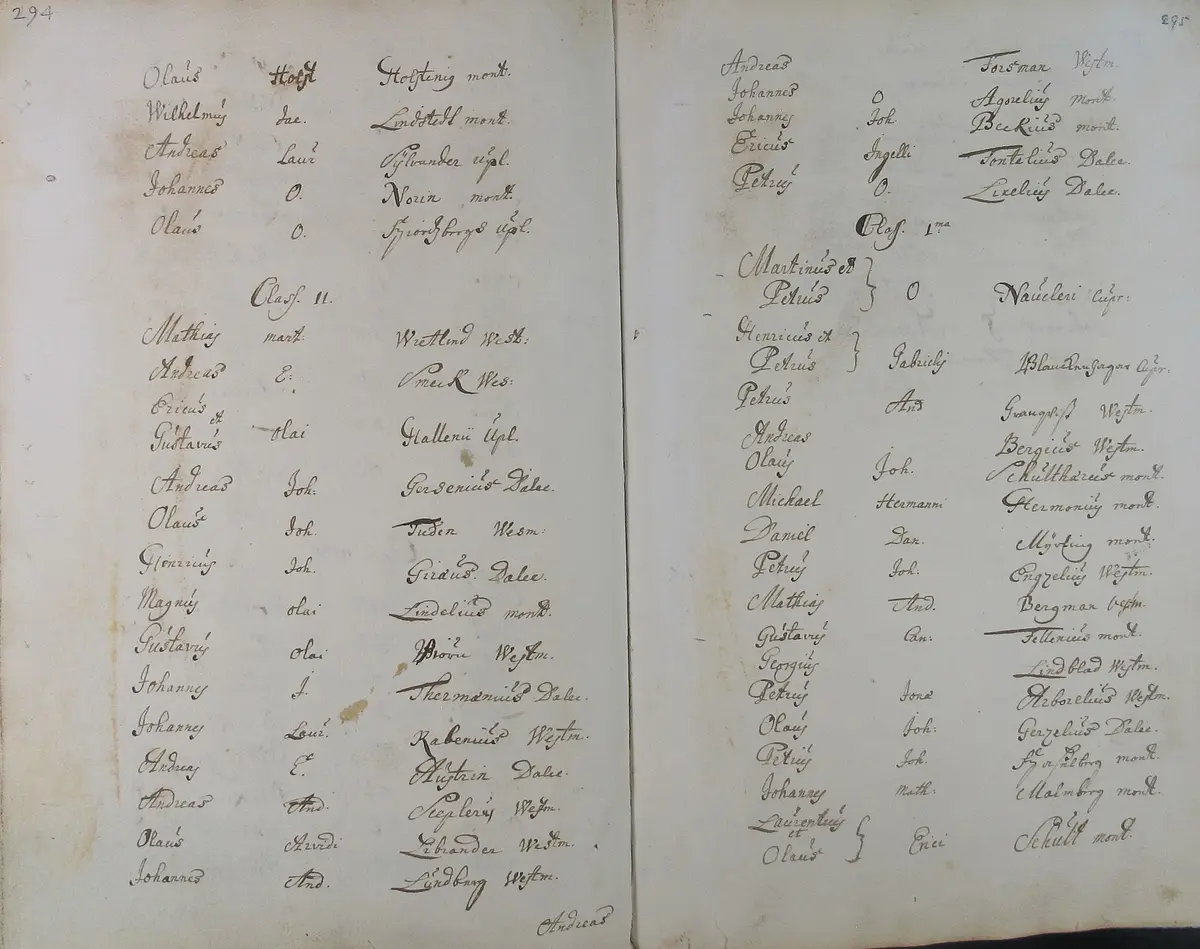 294
Olaus Holst Holstenig mont.
Wilhelmus Jac. Lindstedt mont.
Andreas Laur Sylvander Upl.
Johannes O. Norin mont.
Olaus O. Upl.
Class. II.
Mathias mart. Wretlind West:
Andreas E: Smeck Wes:
Ericus
et
Gustavus olai Hallenii Upl.
Andreas Joh: Gersenius Dalec.
Olaus Joh. Tuden Wesm:
Henricus Joh. Giræus. Dalec.
Magnus olai Lindelius mont.
Gustavus olai Westm.
Johannes J. Thermænius Dalec.
Johannes Laur. Rabenius Westm.
Andreas E. Austrin Dalec.
Andreas And. Seplerus Westm.
Olaus Arvidi Librander Westm.
Johannes And. Lundberg Westm.
Andreas
295
Andreas Forsman Westm.
Johannes O Agorelius mont.
Johannes Joh Beckius mont.
Ericus Ingelli Tontelius Dalec.
Petrus O. Lixelius Dalec.
Class. 1ma
Martinus et
Petrus } O Naucleri Cupr:
Henricus et
Petrus } Gabrielis Cupr.
Petrus And Granqwist Westm.
Andreas Bergius Westm.
Olaus Joh. Schultharus mont.
Michael Hermanni Hermonius mont.
Daniel Dan. Myrting mont.
Petrus Joh. Engzelius Westm.
Mathias And. Bergman Westm.
Gustavus Can: Fellenius mont.
Georgius Lindblad Westm.
Petrus Jonæ Arborelius Westm.
Olaus Joh: Gerzelius Dalec.
Petrus Joh. mont.
Johannes Math: Malmberg mont.
Laurentius
et
Olaus } Erici Schult mont.